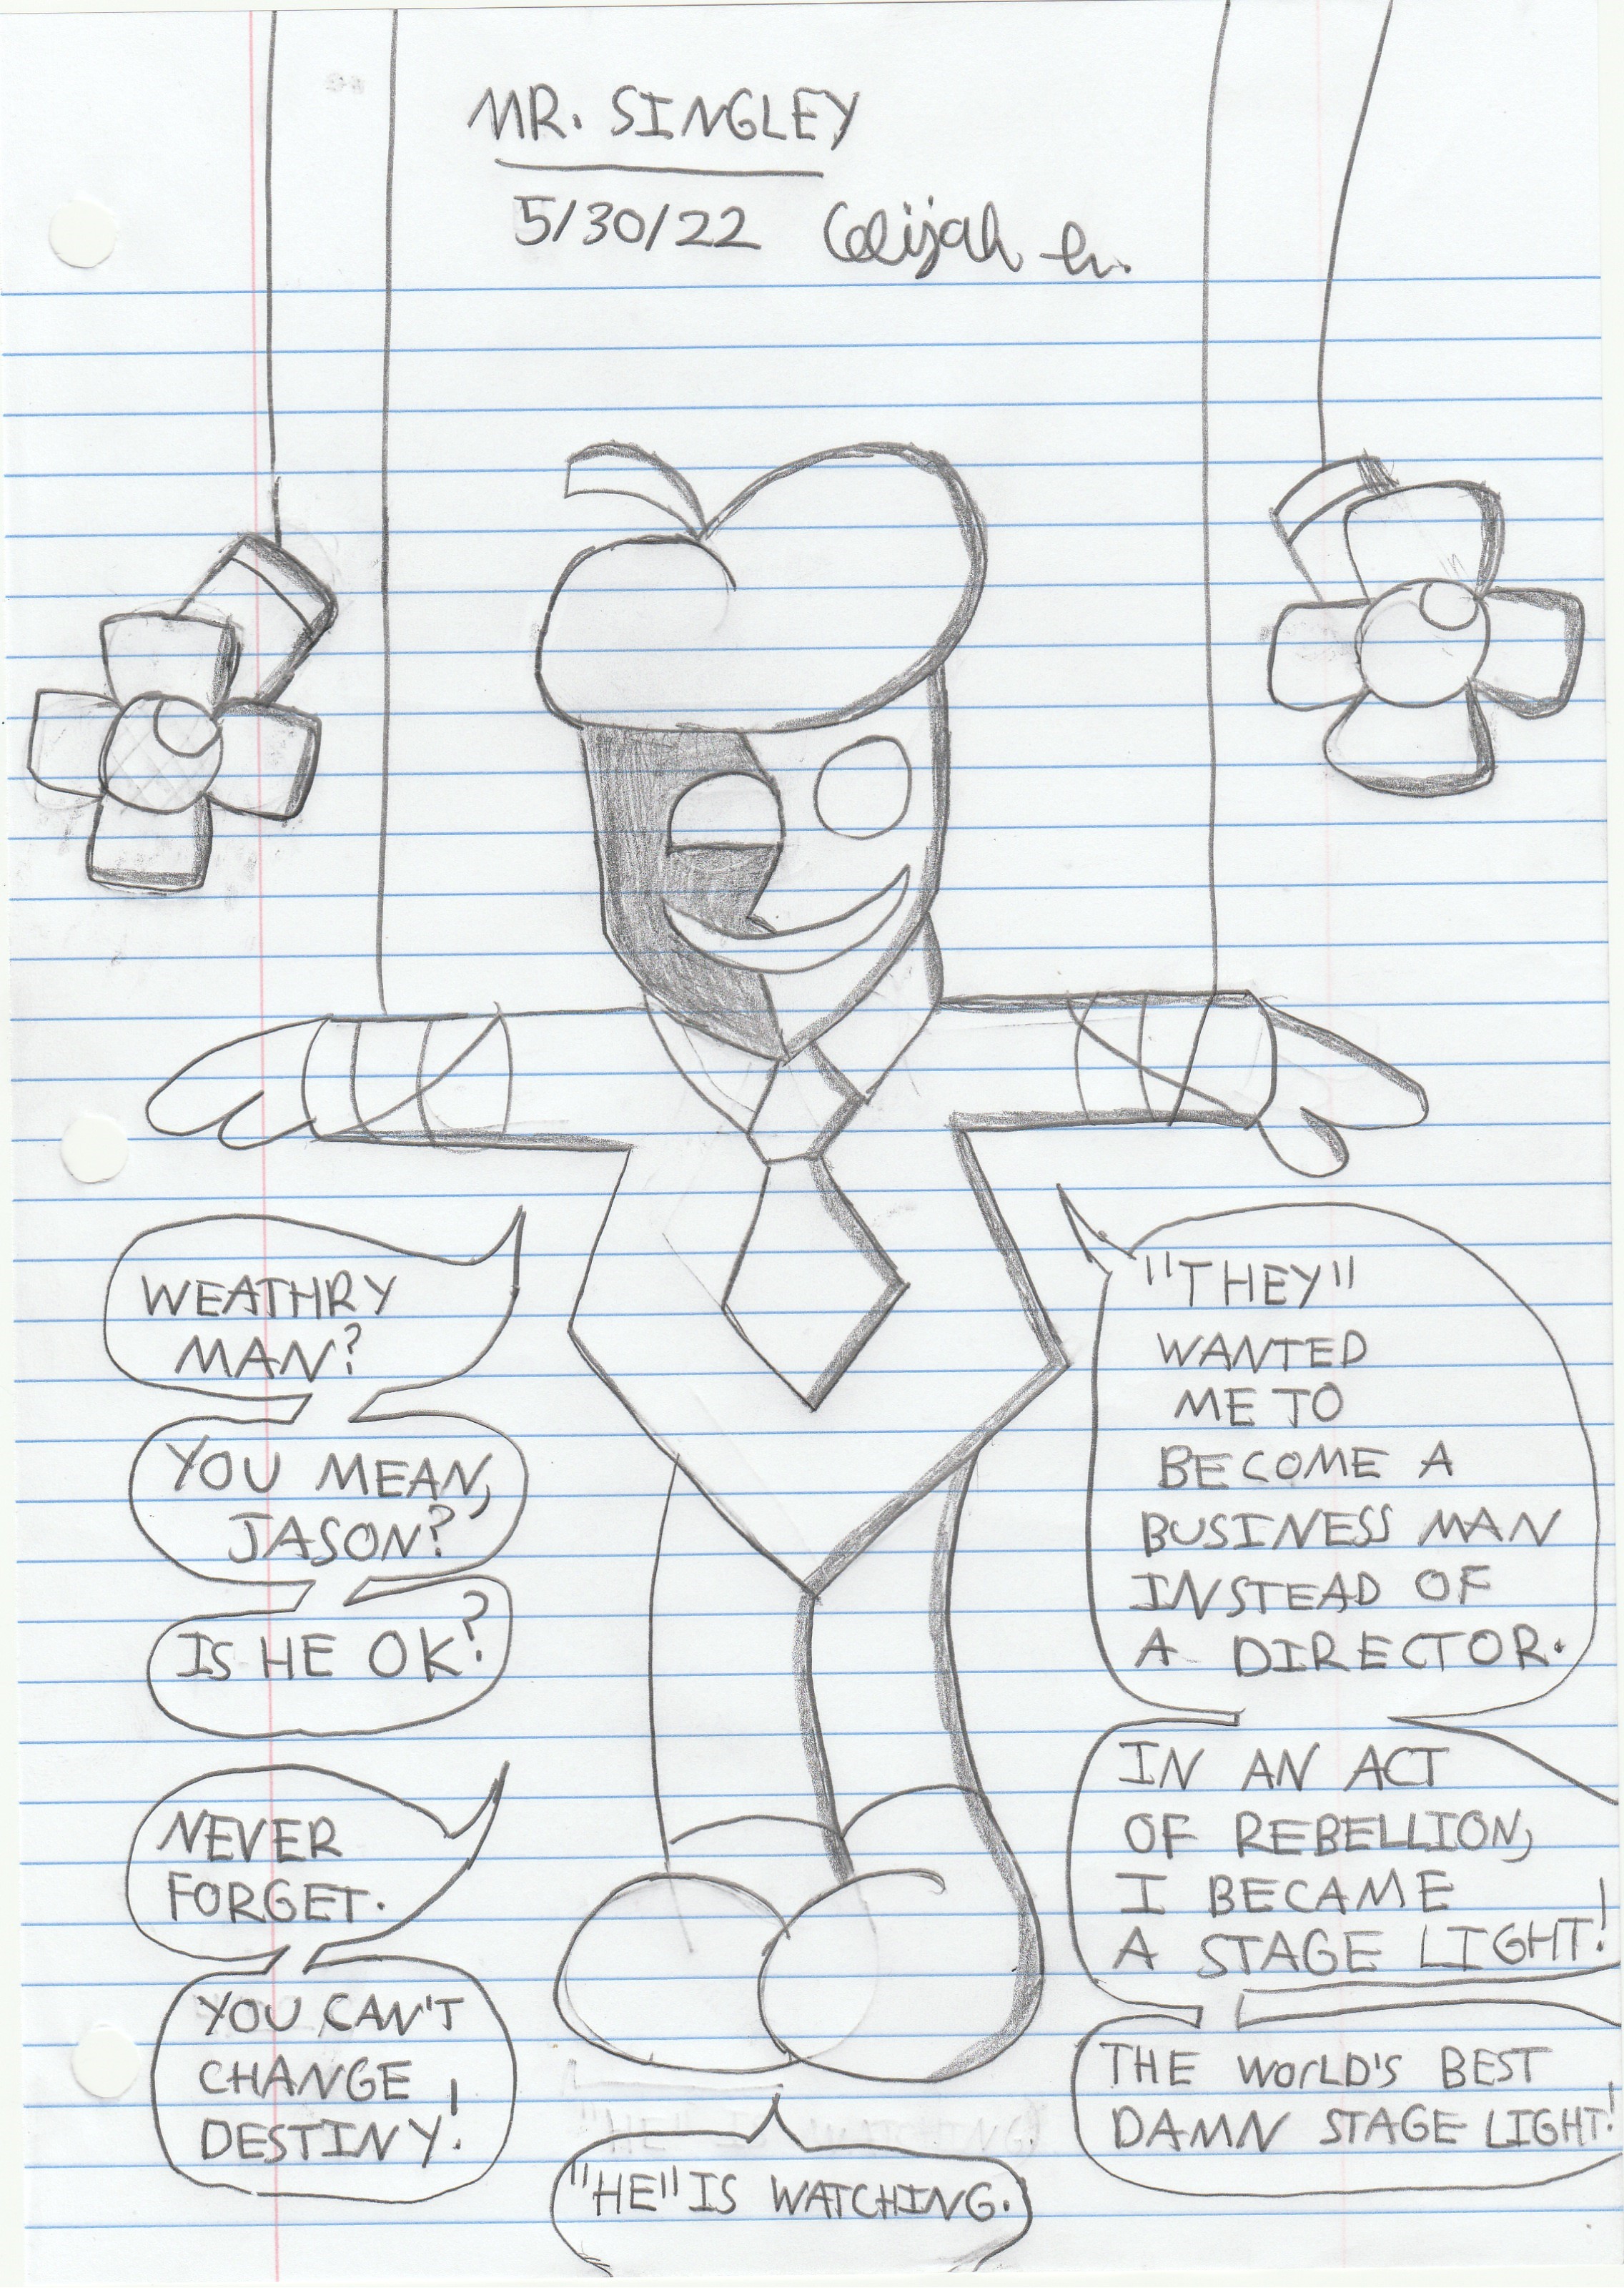 MR. SINGLEY
5/30/22 Elijah h.
WEATHRY
MAN?
YOU MEAN,
JASON?
IS HE OK?
NEVER
FORGET.
YOU CAN'T
CHANGE
DESTINY!
"HE" IS WATCHING.
"THEY"
WANTED
ME TO
BECOME A
BUSINESS MAN
INSTEAD OF
A DIRECTOR.
IN AN ACT
OF REBELLION,
I BECAME
A STAGE LIGHT!
THE WORLD'S BEST
DAMN STAGE LIGHT!